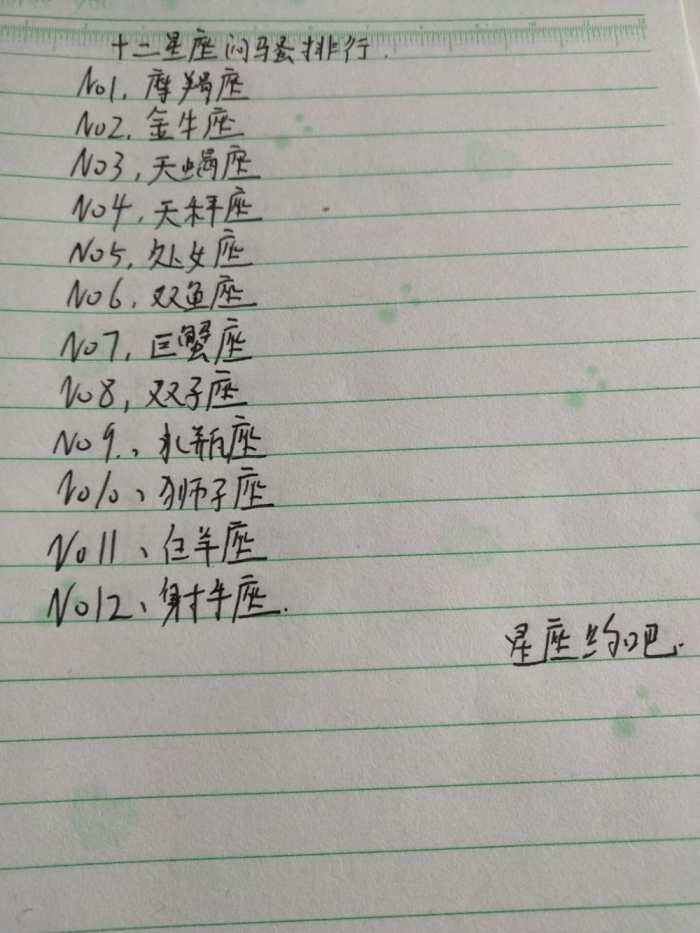 十二星座闷骚排行.
No1, 摩羯座
No2, 金牛座
No3, 天蝎座
No4, 天秤座
No5, 处女座
No6, 双鱼座
No7, 巨蟹座
No8, 双子座
No9、水瓶座
No10、狮子座
No11、白羊座
No12、射手座.
星座约吧.